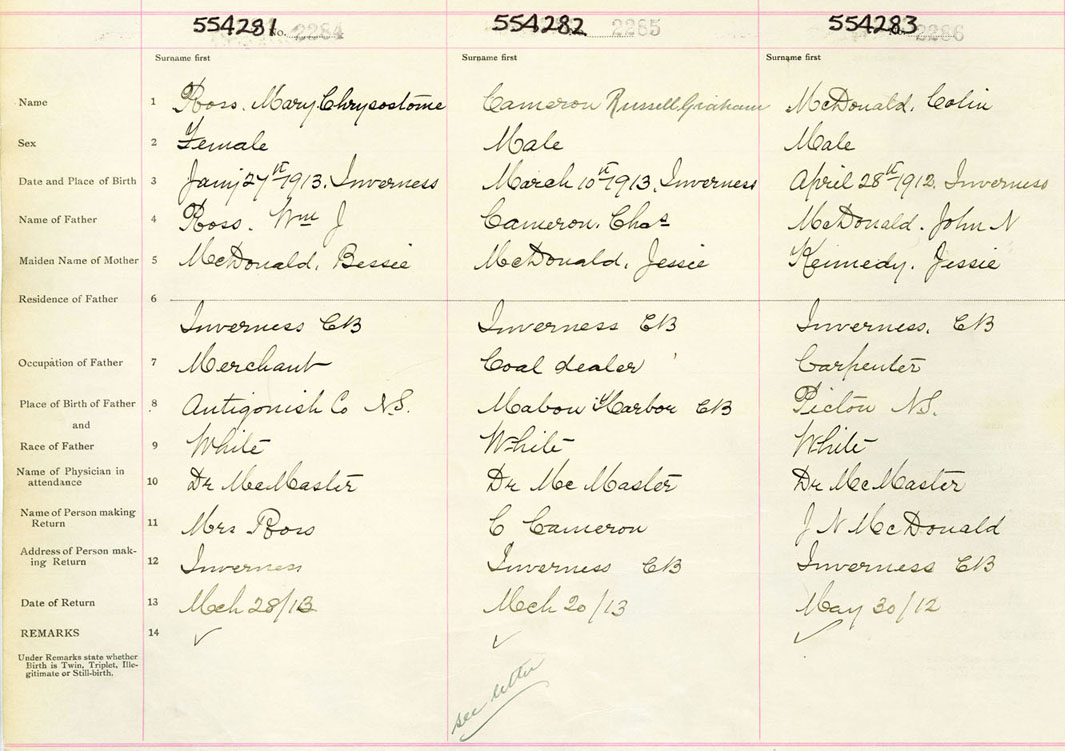 554281 No. 2284 554282 2285 554283 2286
Surname first Surname first Surname first
Name 1 Ross. Mary Chrysostome Cameron Russell Graham McDonald, Colin
Sex 2 Female Male Male
Date and Place of Birth 3 Jany 27st 1913. Inverness March 10st 1913, Inverness April 28st 1912. Inverness
Name of Father 4 Ross. Wm J Cameron. Chas McDonald. John N
Maiden Name of Mother 5 McDonald, Bessie McDonald, Jessie Kennedy. Jessie
Residence of Father 6
Inverness CB Inverness CB Inverness. CB
Occupation of Father 7 Merchant Coal dealer Carpenter
Place of Birth of Father 8 Antigonish Co N.S. Mabou Harbor CB Picton N.S.
and
Race of Father 9 White White White
Name of Physician in
attendance 10 Dr McMaster Dr Mc Master Dr McMaster
Name of Person making
Return 11 Mrs Ross C Cameron J N McDonald
Address of Person mak-
ing Return 12 Inverness Inverness CB Inverness CB
Date of Return 13 Mch 28/13 Mch 20/13 May 30/12
REMARKS 14 ✓ ✓ ✓
Under Remarks state whether
Birth is Twin, Triplet, Ille-
gitimate or Still-birth.
see letter